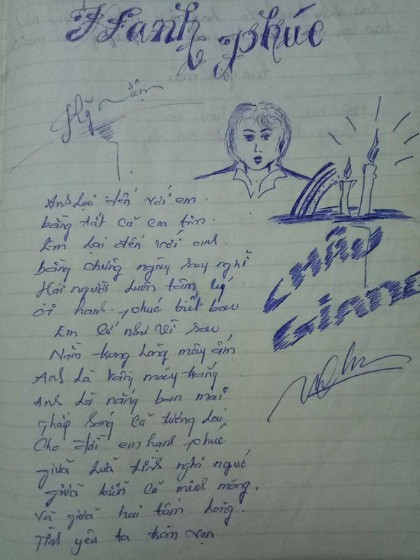 Hạnh phúc
Kỷ niệm
Anh lại đến với em
bằng tất cả con tim
Em lại đến với anh
bằng những ngày suy nghĩ
Hai người luôn tâm lý
Ôi hạnh phúc biết bao
Em cứ như vì sao
Nằm trong lòng mây ấm
Anh là vầng mây trắng
Anh là nắng ban mai
Thắp sáng cả tương lai
Cho đời em hạnh phúc
giữa bốn
giữa biển cả mênh mông
Và giữa hai tấm lòng
Tình yêu ta trọn vẹn
Châu
Giang